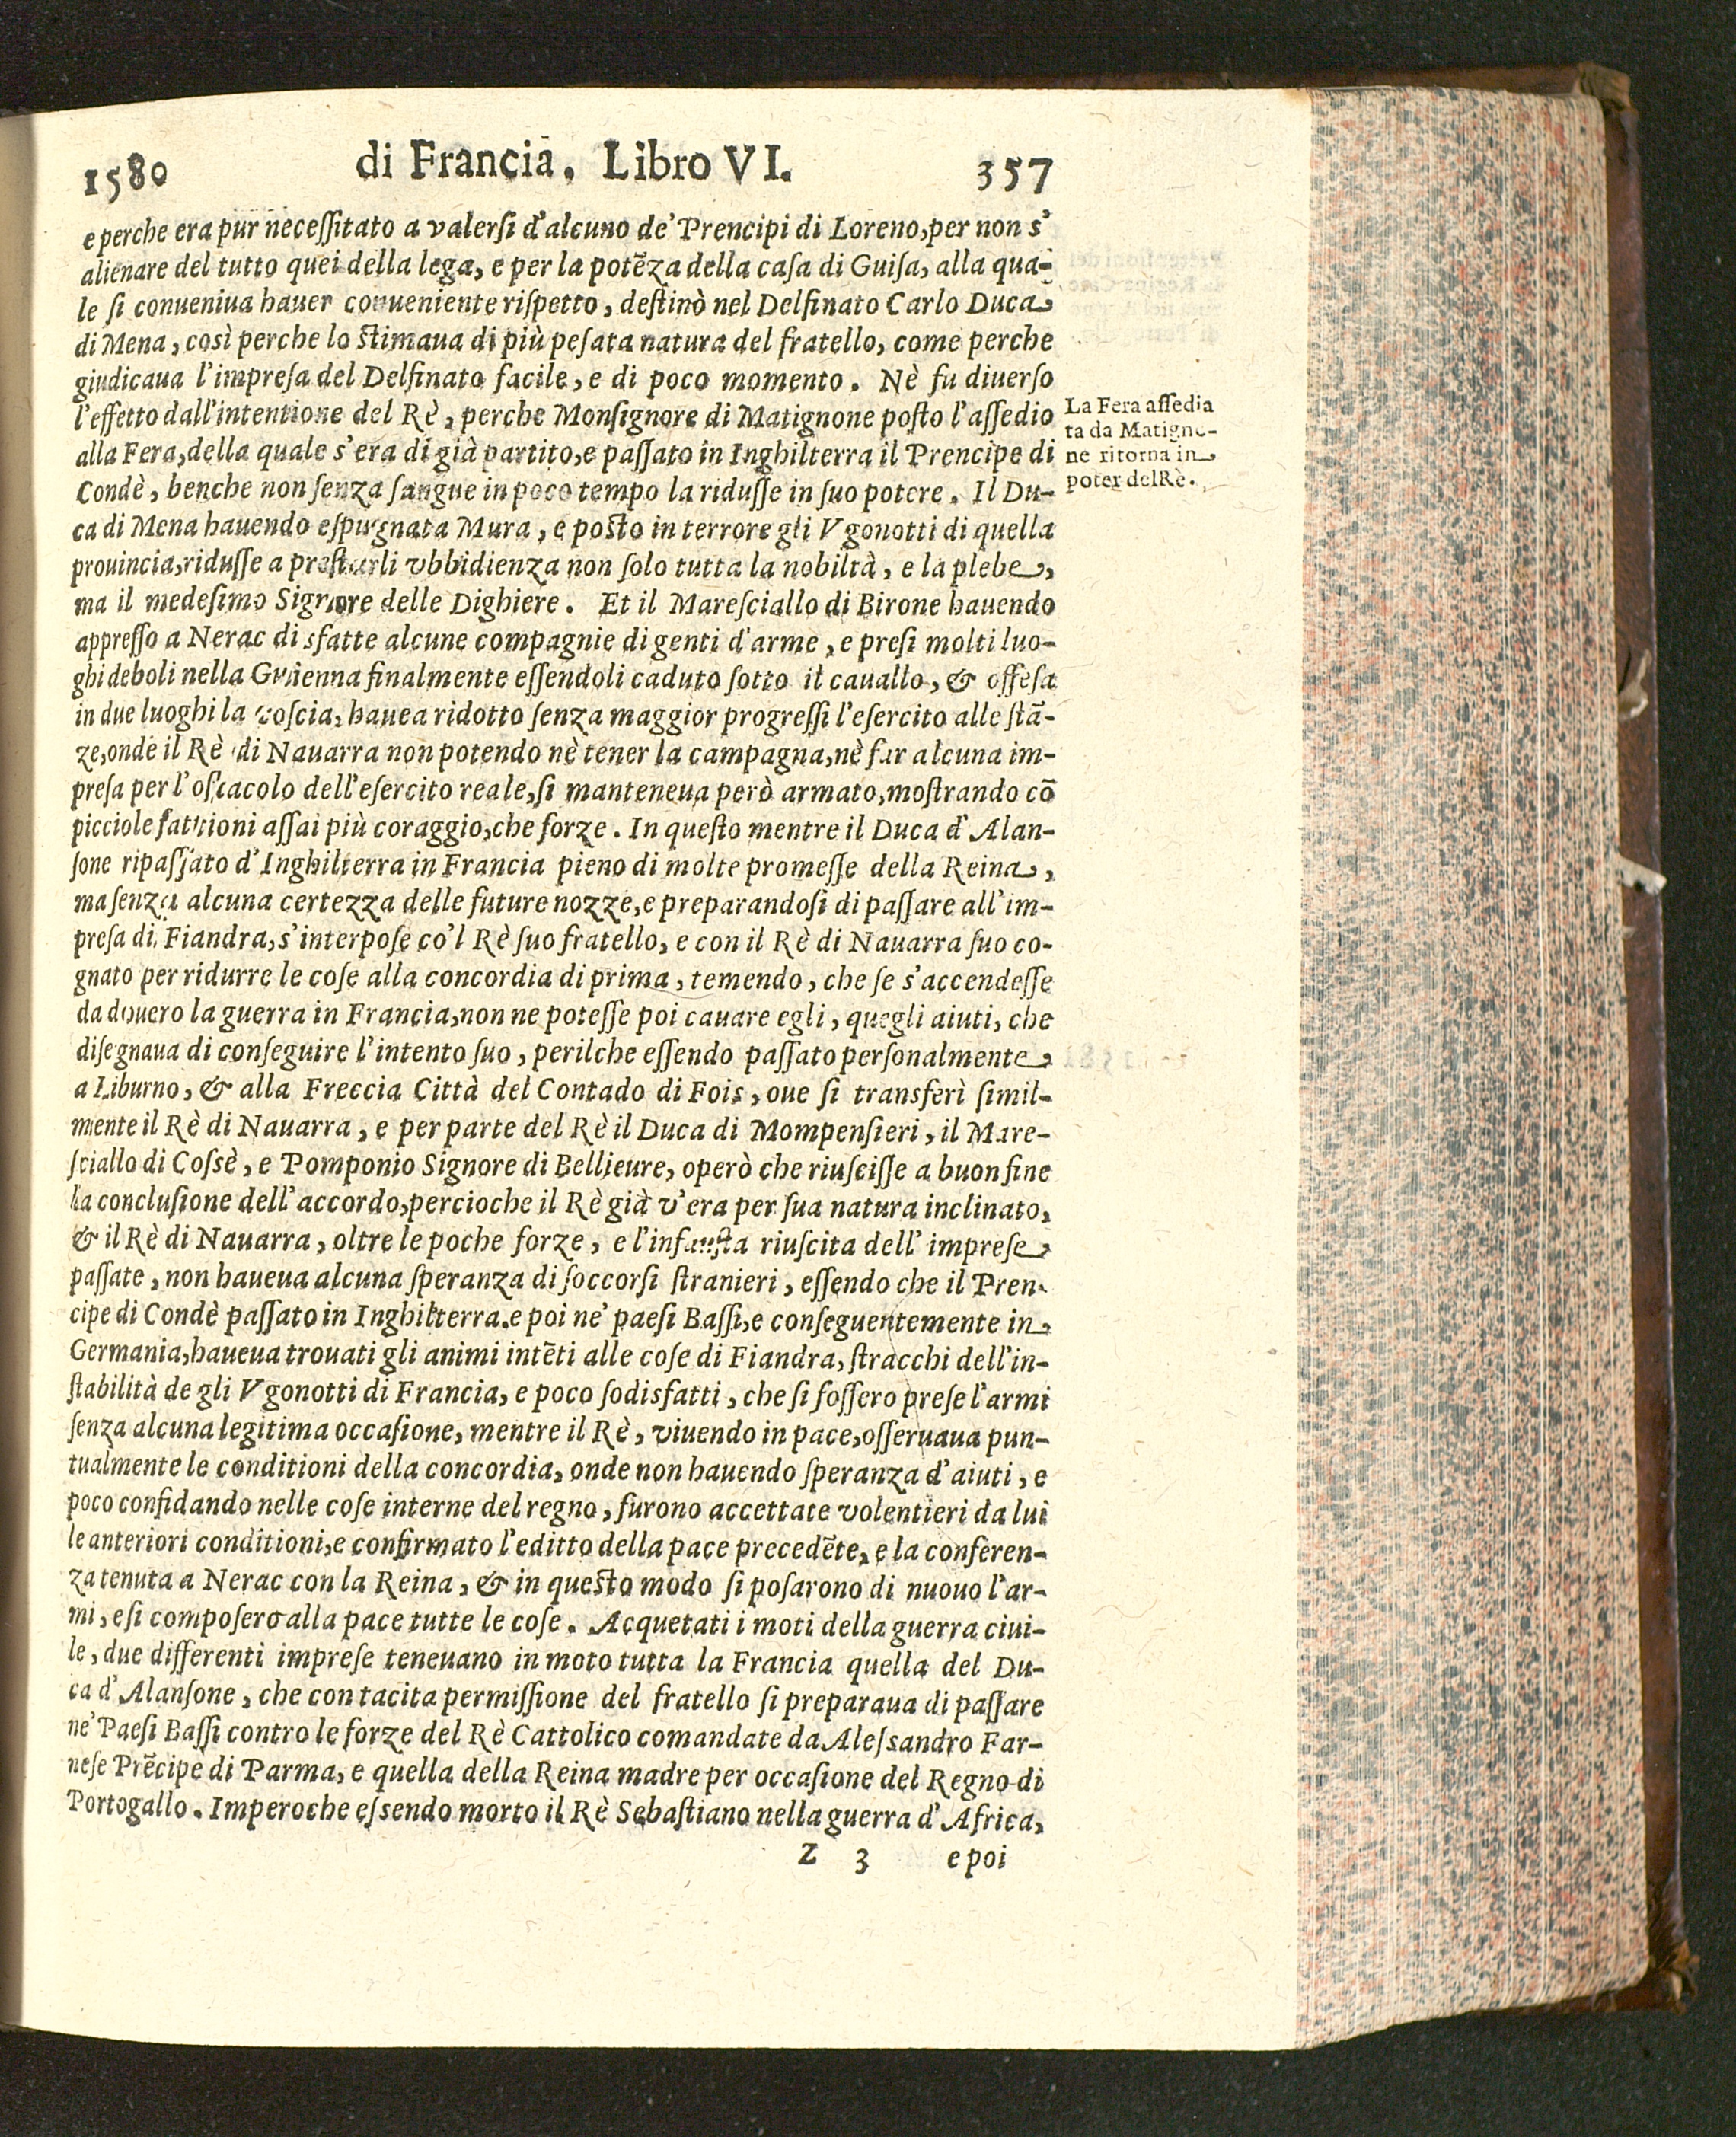 1580 di Francia. Libro VI. 357
e perche era pur neceſſitato a valerſi d'alcuno de' Prencipi di Loreno, per non s'
alienare del tutto quei della lega, e per la potēza della caſa di Guiſa, alla qua-
le ſi conueniua hauer conueniente riſpetto, deſtinò nel Delfinato Carlo Duca
di Mena, così perche lo ſtimaua di più peſata natura del fratello, come perche
giudicaua l'impreſa del Delfinato facile, e di poco momento. Nè fu diuerſo
l'effetto dall'intentione del Rè, perche Monſignore di Matignone poſto l'aſſedio
alla Fera, della quale s'era di già partito, e paſſato in Inghilterra il Prencipe di
Condè, benche non ſenza ſangue in poco tempo la riduſſe in ſuo potere. Il Du-
ca di Mena hauendo eſpugnata Mura, e poſto in terrore gli Vgonotti di quella
prouincia, riduſſe a preſtarli vbbidienza non ſolo tutta la nobiltà, e la plebe,
ma il medeſimo Signore delle Dighiere. Et il Mareſciallo di Birone hauendo
appreſſo a Nerac disfatte alcune compagnie di genti d'arme, e preſi molti luo-
ghi deboli nella Guienna finalmente eſſendoli caduto ſotto il cauallo, & offeſa
in due luoghi la coſcia, hauea ridotto ſenza maggior progreſſi l'eſercito alle ſtā-
ze, onde il Rè di Nauarra non potendo nè tener la campagna, nè far alcuna im-
preſa per l'oſtacolo dell'eſercito reale, ſi manteneua però armato, moſtrando cō
picciole fattioni aſſai più coraggio, che forze. In queſto mentre il Duca d'Alan-
ſone ripaſſato d'Inghilterra in Francia pieno di molte promeſſe della Reina,
ma ſenza alcuna certezza delle future nozze, e preparandoſi di paſſare all'im-
preſa di Fiandra, s'interpoſe co'l Rè ſuo fratello, e con il Rè di Nauarra ſuo co-
gnato per ridurre le coſe alla concordia di prima, temendo, che ſe s'accendeſſe
da douero la guerra in Francia, non ne poteſſe poi cauare egli, quegli aiuti, che
diſegnaua di conſeguire l'intento ſuo, perilche eſſendo paſſato perſonalmente
a Liburno, & alla Freccia Città del Contado di Fois, oue ſi transferì ſimil-
mente il Rè di Nauarra, e per parte del Rè il Duca di Mompenſieri, il Mare-
ſciallo di Coſsè, e Pomponio Signore di Bellieure, operò che riuſciſſe a buon fine
la concluſione dell'accordo, percioche il Rè già v'era per ſua natura inclinato,
& il Rè di Nauarra, oltre le poche forze, e l'infauſta riuſcita dell'impreſe
paſſate, non haueua alcuna ſperanza di ſoccorſi ſtranieri, eſſendo che il Pren-
cipe di Condè paſſato in Inghilterra, e poi ne' paeſi Baſſi, e conſeguentemente in
Germania, haueua trouati gli animi intēti alle coſe di Fiandra, ſtracchi dell'in-
ſtabilità de gli Vgonotti di Francia, e poco ſodisfatti, che ſi foſſero preſe l'armi
ſenza alcuna legitima occaſione, mentre il Rè, viuendo in pace, oſſeruaua pun-
tualmente le conditioni della concordia, onde non hauendo ſperanza d'aiuti, e
poco confidando nelle coſe interne del regno, furono accettate volentieri da lui
le anteriori conditioni, e confirmato l'editto della pace precedēte, e la conferen-
za tenuta a Nerac con la Reina, & in queſto modo ſi poſarono di nuouo l'ar-
mi, e ſi compoſero alla pace tutte le coſe. Acquetati i moti della guerra ciui-
le, due differenti impreſe teneuano in moto tutta la Francia quella del Du-
ca d'Alanſone, che con tacita permiſſione del fratello ſi preparaua di paſſare
ne' Paeſi Baſſi contro le forze del Rè Cattolico comandate da Aleſsandro Far-
neſe Prēcipe di Parma, e quella della Reina madre per occaſione del Regno di
Portogallo. Imperoche eſsendo morto il Rè Sebaſtiano nella guerra d'Africa,
Z 3 e poi
La Fera aſſedia
ta da Matigno-
ne ritorna in
poter del Rè.